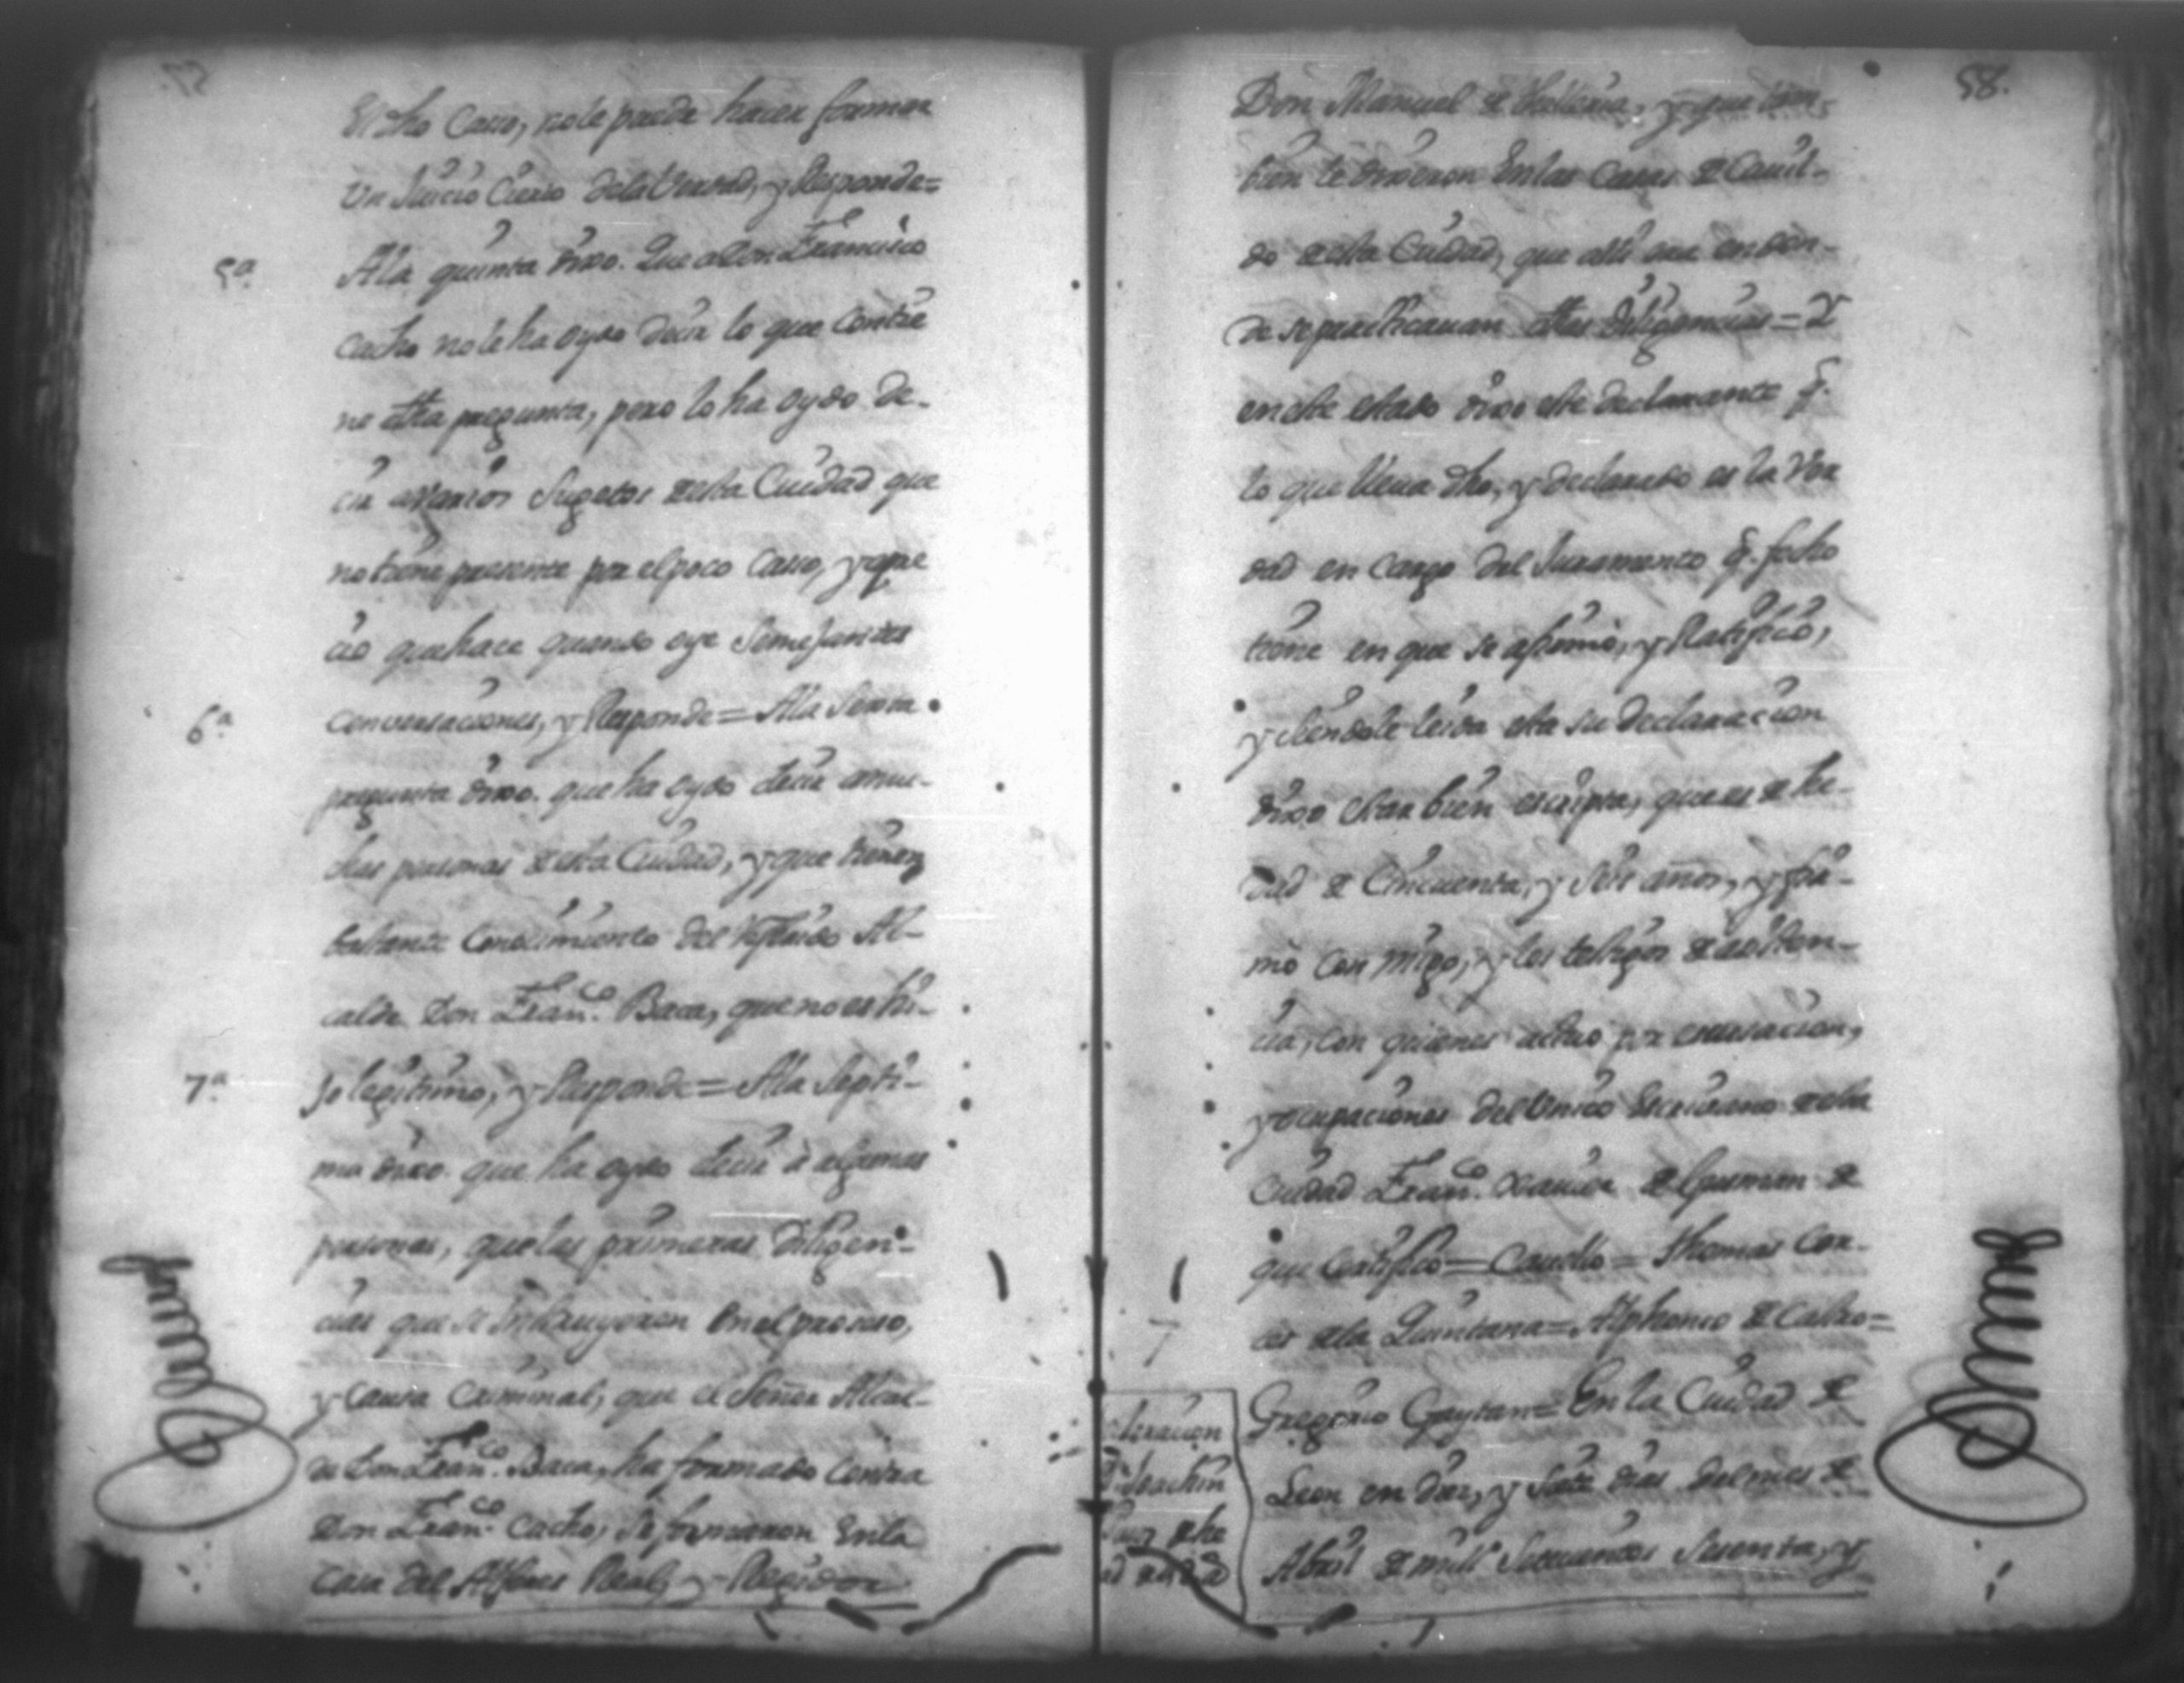 El dho Caso, no le puede hacer formar
Un Juicio Cierto dela Verdad, y Responde=
5ª
Ala quinta dixo. Que a Don Francisco
Cacho no le ha oydo decir lo que Contie
ne dha pregunta, pero lo ha oydo de-
cir a varios Sugetos de esta Ciudad que
no tiene presente por el poco Caso, y apre
cio que hace quando oye Semejantes
6ª
Conversaciones, y Responde= Ala Sexta
pregunta dixo. que ha oydo decir a mu-
chas personas de esta Ciudad, y que tienen
bastante Conocimiento del referido Al-
calde Don Franco. Baca, que no es hi-
7ª
jo legitimo, y Responde= Ala Septi-
ma dixo. que ha oydo decir à algunas
personas, que las primeras Diligen-
cias que se instruyeron en el proceso,
y Causa Criminal, que el Señor Alcal-
de Don Franco. Baca, ha formado Contra
Don Franco. Cacho, se formaron en la
Casa del Alferes Real, y Regidor
58.
Don Manuel de y que tam-
bien le dixeron en las Casas de Cavil-
do de esta Ciudad, que alli era en don-
de se practicavan dhas Diligencias= Y
en este estado dixo este declarante q.
lo que lleva dho, y declarado es la Ver
dad en cargo del Juramento q. fecho
tiene en que se afirmò, y Ratificò,
y siendole leida esta su Declaracion
dixo estar bien escripta, que es de he-
dad de Cinquenta, y Seis años, y fir-
mò con migo, y los testigos de asisten-
cia, con quienes actuo por
y ocupaciones del Unico Escrivano de esta
Ciudad Franco. Xavier de Guzman de
que Certifico= Caudio= Thomas Cor-
ces de la Quintana= Alphonso de Castro=
Gregorio Gaytan= En la Ciudad de
Leon en diez, y Siete dias del mes de
Abril de mill Setecientos Sesenta, y
claracion
Dn. Joachin